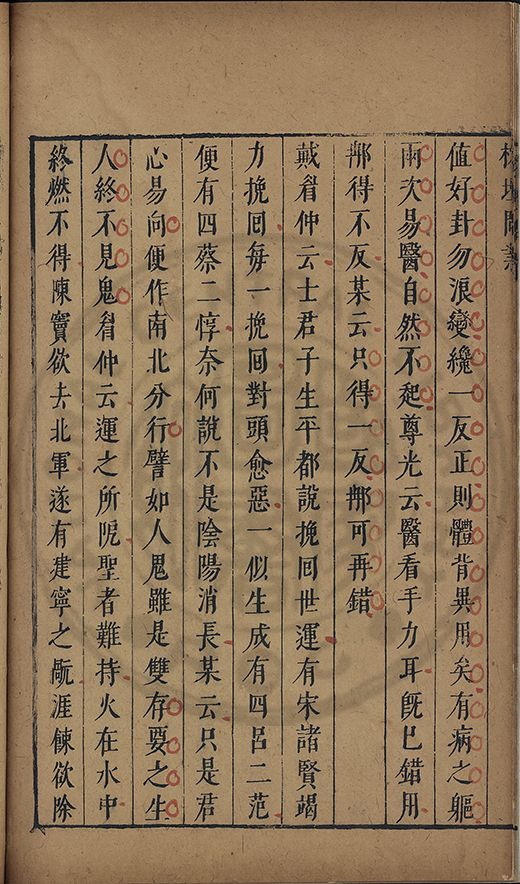 榕壇問業
值好卦勿浪變纔一反正則體背異用矣有病之軀
兩次易醫自然不起尊光云醫看手力耳既已錯用
那得不反某云只得一反那可再錯
戴眉仲云士君子生平都說挽回世運有宋諸賢竭
力挽回每一挽回對頭愈惡一似生成有四呂二范
便有四蔡二惇奈何說不是陰陽消長某云只是君
心易向便作南北分行譬如人鬼雖是雙存要之生
人終不見鬼眉仲云運之所阨聖者難持火在水中
終燃不得陳竇欲去北軍遂有建寧之
涯餗欲除